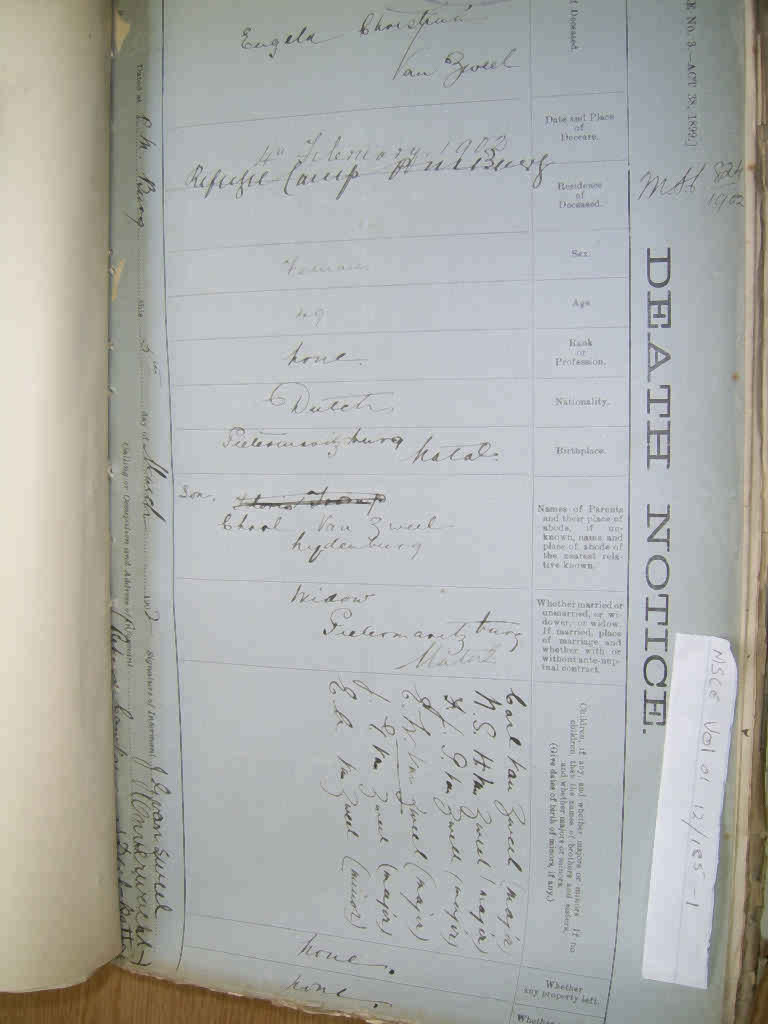 E No. 3.—ACT 38, 1899.]
MSC 824
1902
DEATH NOTICE.
NSC6 Vol 01 12/185-1
f Deceased.
Engela Christina
Van Zweel
Date and Place
of
Decease.
4th February 1902
Residence
of
Deceased.
Refugee Camp
Sex.
Female
Age
49
Rank
or
Profession.
none.
Nationality.
Dutch.
Birthplace.
Pietermaritzburg Natal.
Names of Parents
and their place of
abode, if un-
known, name and
place of abode of
the nearest rela-
tive known.
Son.
Van Zweel
Lydenburg
Whether married or
unmarried, or wi-
dower, or widow.
If married, place
of marriage and
whether with or
without ante-nup-
tual contract.
Widow
Pietermaritzburg
Natal
Children, if any, and whether majors or minors. If no
children, then the names of brothers and sisters,
and whether majors or minors.
(Give dates of birth of minors, if any.)
Carl Van Zweel (major)
Van Zweel (major)
Van Zweel (major)
Van Zweel (major)
Van Zweel (major)
Van Zweel (minor)
Whether
any property left.
none.
Whether
none.
Dated at P. M. Burg this 5th day of March 1902
Signature of Informant
Calling or Occupation and Address of Informant